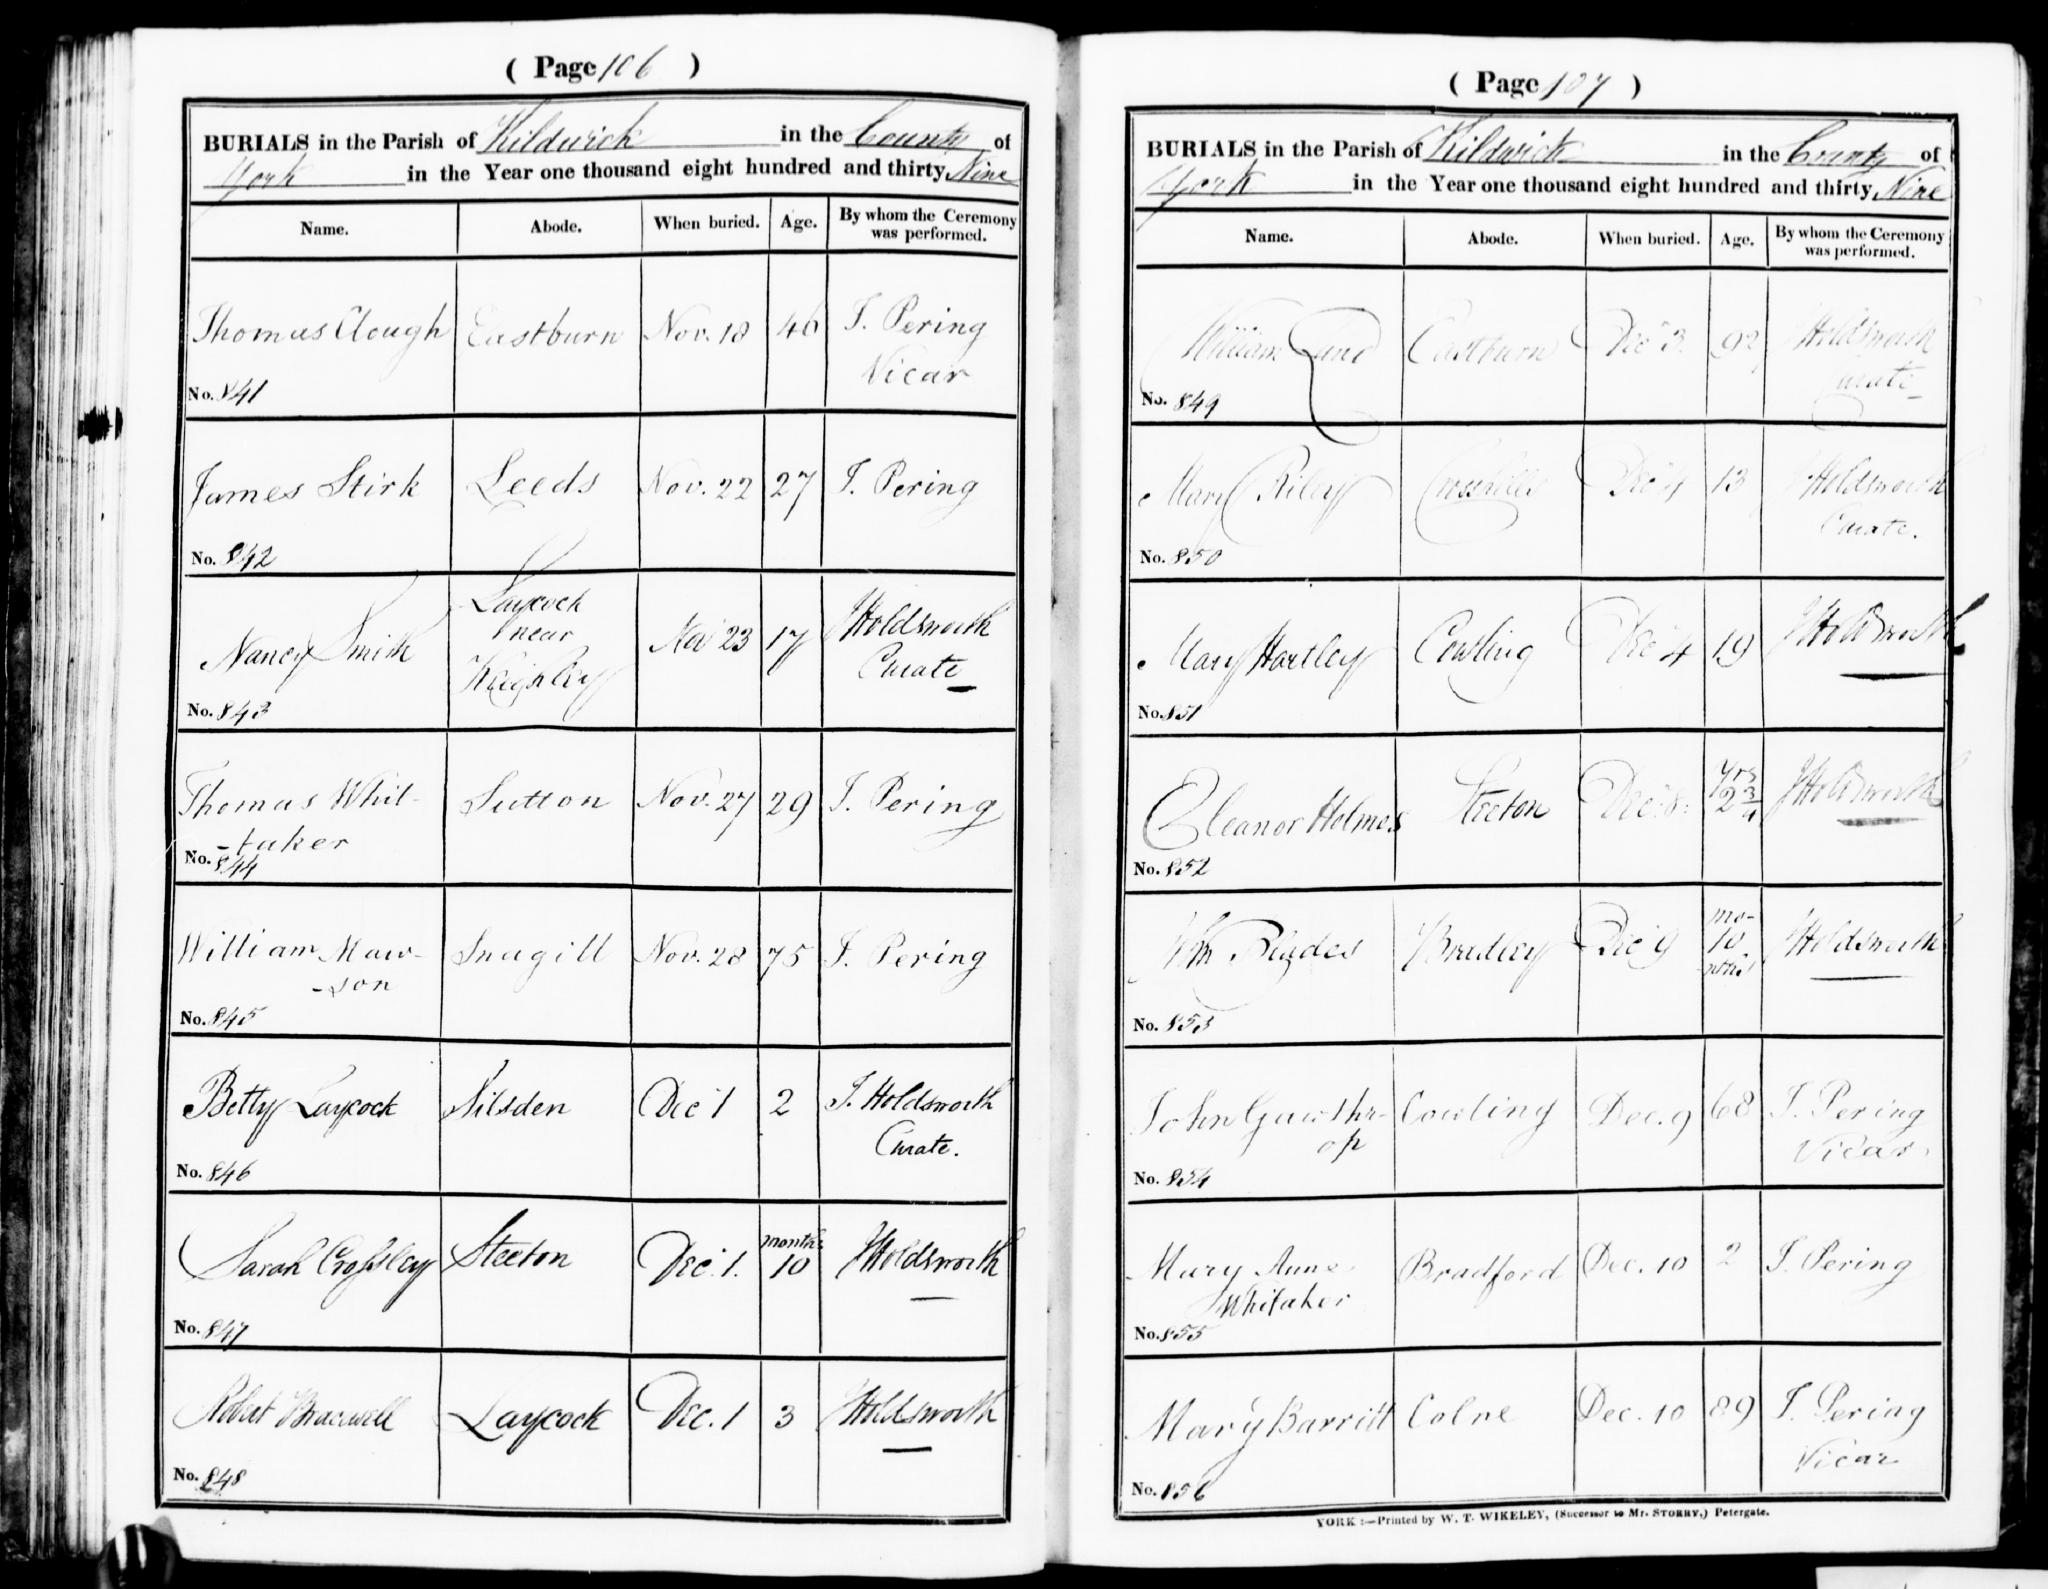 ( Page 106 )
BURIALS in the Parish of Kildwick in the County of
York in the Year one thousand eight hundred and thirty Nine
Name. Abode. When buried. Age. By whom the Ceremony was performed.
Thomas Clough Eastburn Nov. 18 46 J. Pering
Vicar
No. 841
James Stirk Leeds Nov. 22 27 J. Pering
No. 842
Laycock
near
Nancy Smith Keighley Nov 23 17 J Holdsworth
Curate
No. 843
Thomas Whit- Sutton Nov. 27 29 J. Pering
-taker
No. 844
William Maw- Snagill Nov. 28 75 J. Pering
-son
No. 845
Betty Laycock Silsden Dec 1 2 J. Holdsworth
Curate.
No. 846
months
Sarah Crossley Steeton Dec. 1. 10 J Holdsworth
No. 847
Robert Bracewell Laycock Dec. 1 3 J Holdsworth
No. 848
( Page 107 )
BURIALS in the Parish of Kildwick in the County of
York in the Year one thousand eight hundred and thirty Nine
Name. Abode. When buried. Age. By whom the Ceremony was performed.
William Lund Eastburn Dec 3. 92 J Holdsworth
Curate
No. 849
Mary Riley Crosshills Dec 4 13 J Holdsworth
Curate.
No. 850
Mary Hartley Cowling Dec 4 19 J Holdsworth
No. 851
yrs
Eleanor Holmes Steeton Dec. 8. 2 3/4 J Holdsworth
No. 852
mo-
Wm Blades Bradley Dec 9 10 J Holdsworth
-nths
No. 853
John Gawthr- Cowling Dec. 9 68 J. Pering
op Vicar
No. 854
Mary Anne Bradford Dec. 10 2 J. Pering
Whitaker
No. 855
Mary Barritt Colne Dec. 10 89 J. Pering
Vicar
No. 856
YORK :—Printed by W. T. WIKELEY, (Successor to Mr. STORRY,) Petergate.